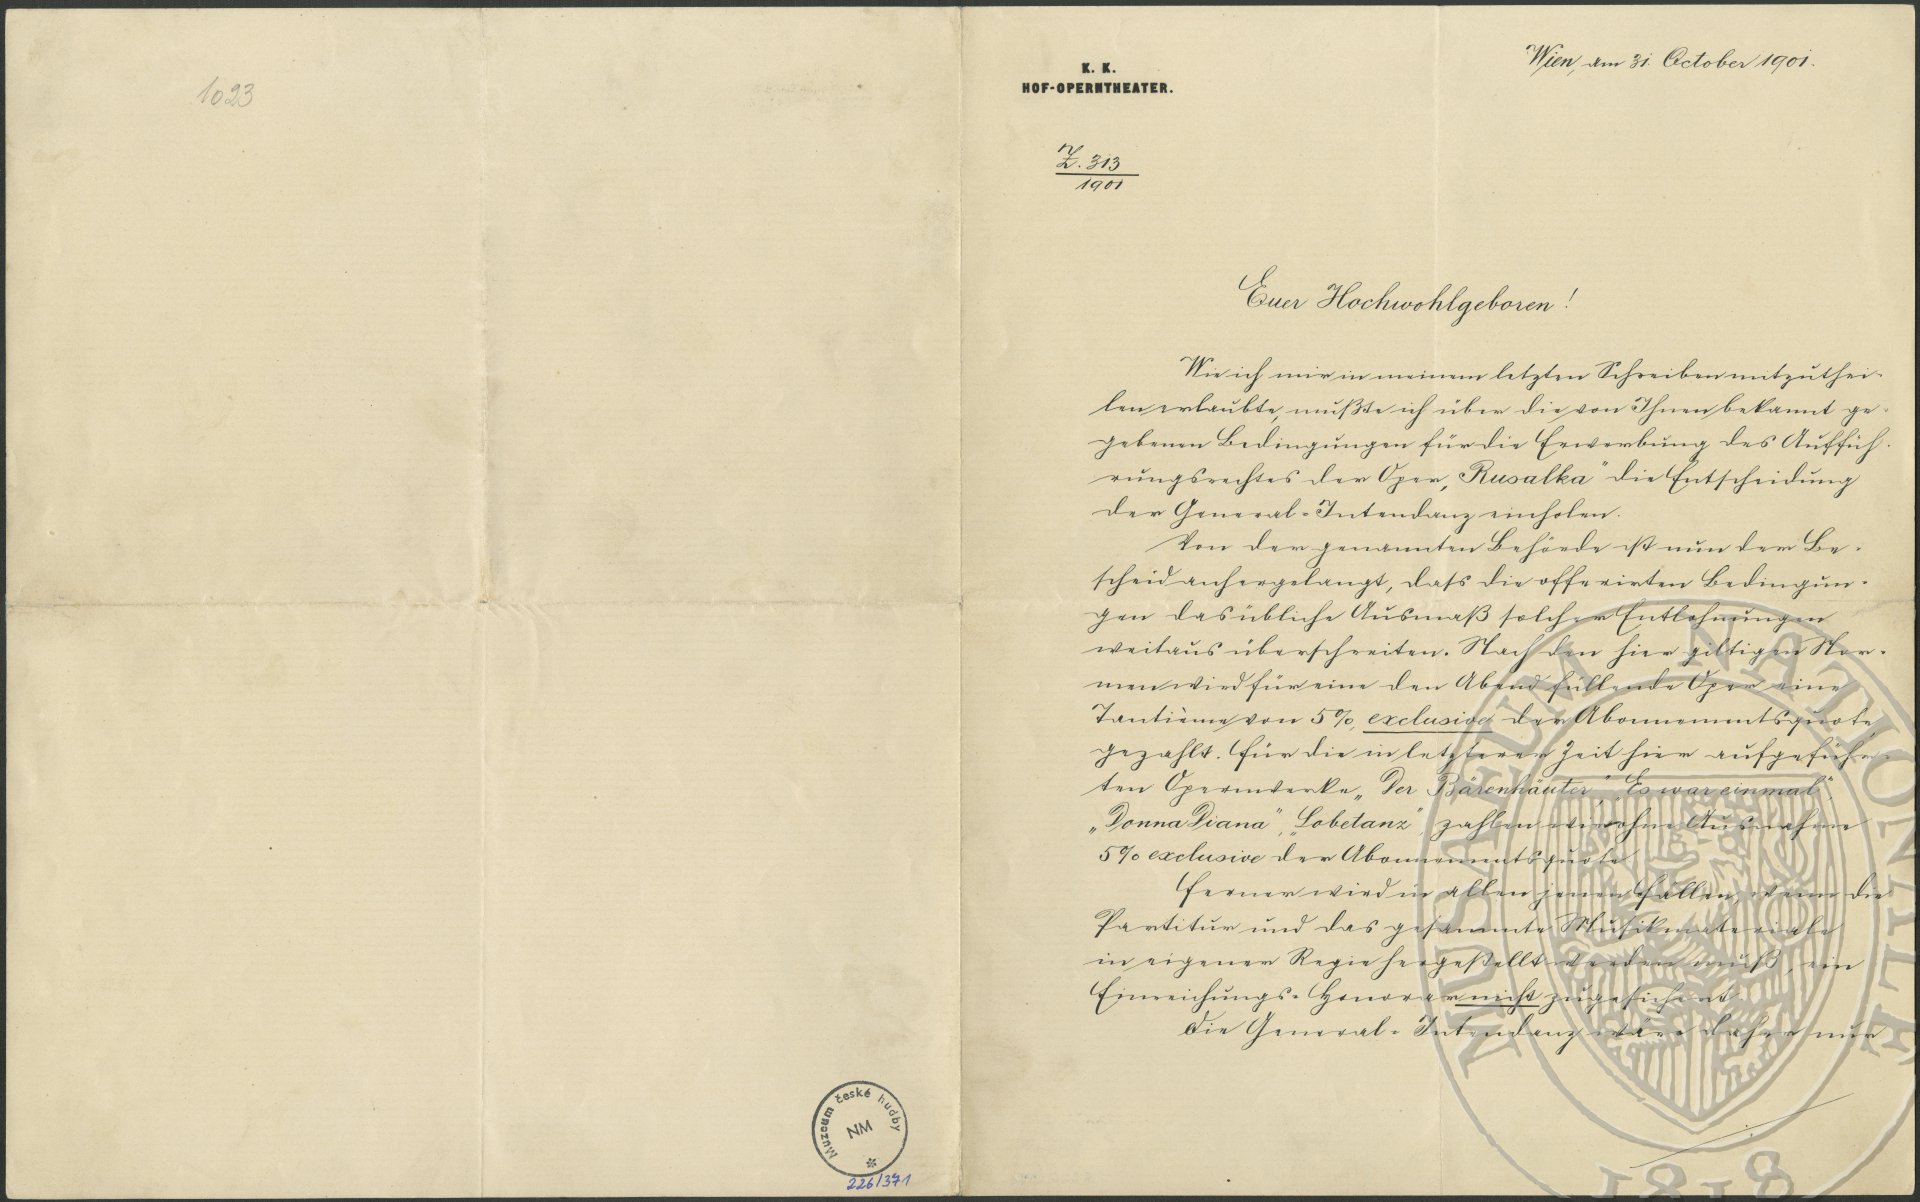 1023
K. K.
HOF-OPERNTHEATER.
Wien, am 31. October 1901.
Z. 313
1901
Euer Hochwohlgeboren!
Wie ich mir in meinem letzten Schreiben mitzuthei-
len erlaubte, mußte ich über die von Ihnen bekannt ge-
gebenen Bedingungen für die Erwerbung des Auffüh-
rungsrechtes der Oper „Rusalka" die Entscheidung
der General-Intendanz einholen.
Von der genannten Behörde ist nun der Be-
scheid anhergelangt, dass die offerirten Bedingun-
gen das übliche Ausmaß solcher Entlohnungen
weitaus überschreiten. Nach den hier giltigen Nor-
men wird für eine den Abend füllende Oper eine
Tantième von 5%, exclusive der Abonnementsquote
gezahlt. Für die in letzterer Zeit hier aufgeführ-
ten Opernwerke „Der Bärenhäuter", „Es war einmal",
„Donna Diana", „Lobetanz", zahlen wir ohne Ausnahme
5% exclusive der Abonnementsquote.
Ferner wird in allen jenen Fällen, wenn die
Partitur und das gesammte Musikmateriale
in eigener Regie hergestellt werden muß, ein
Einreichungs-Honorar nicht zugesichert.
Die General-Intendanz wäre daher nur
Muzeum české hudby
NM
226/371
MUSAEUM NATIONALE
1818